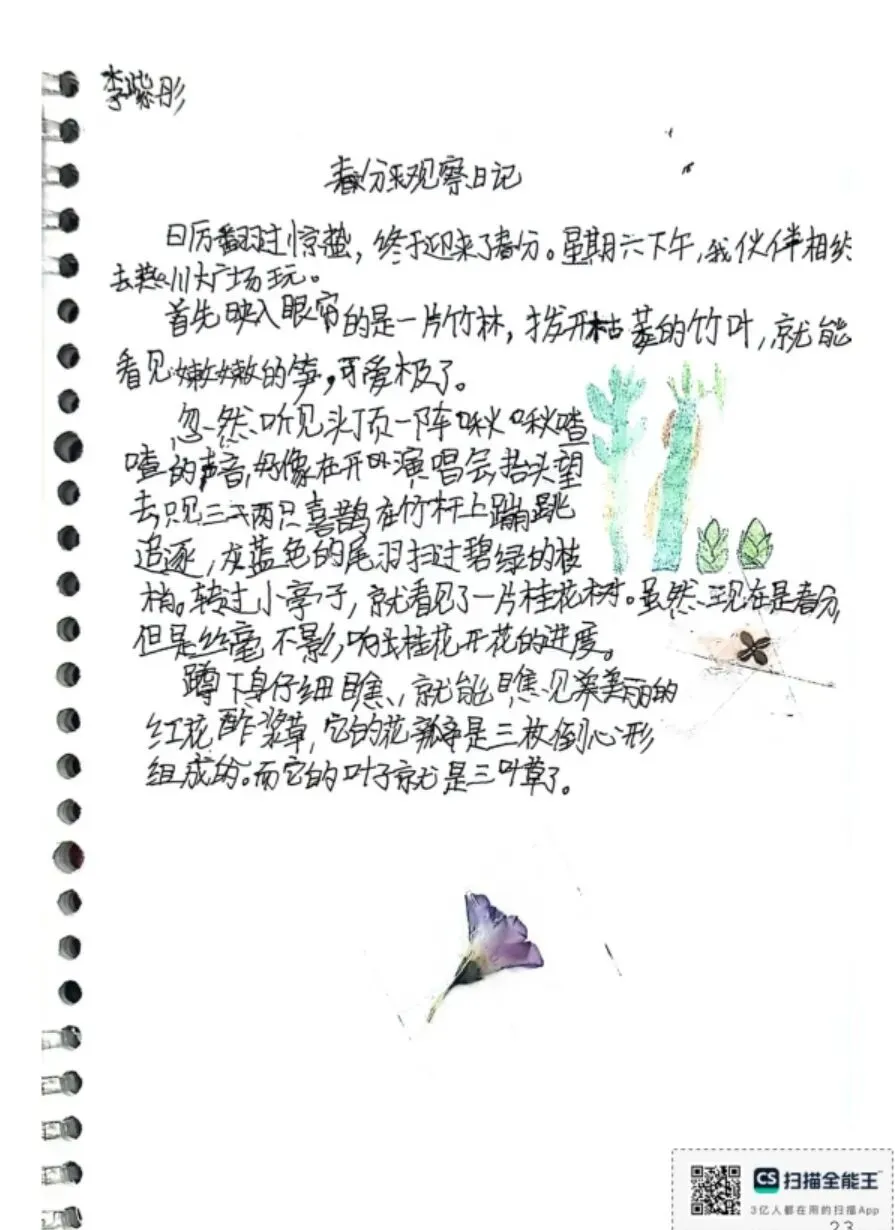 李紫彤
春分来观察日记
日历翻过惊蛰，终于迎来了春分。星期六下午，我伙伴相约
去 川大广场玩。
首先映入眼帘的是一片竹林，拨开枯萎的竹叶，就能
看见嫩嫩的笋，可爱极了。
忽然听见头顶一阵啾啾喳
喳的声音，好像在开 演唱会，抬头望
去只见三 两只喜鹊在竹杆上蹦跳
追逐，灰蓝色的尾羽扫过碧绿的枝
梢。转过小亭子，就看见了一片桂花树。虽然现在是春分，
但是丝毫不影响 桂花开花的进度。
蹲下身仔细瞧，就能瞧见 美丽的
红花酢浆草，它的花瓣是三枚倒心形
组成的。而它的叶子就是三叶草了。
CS 扫描全能王
3亿人都在用的扫描App
23